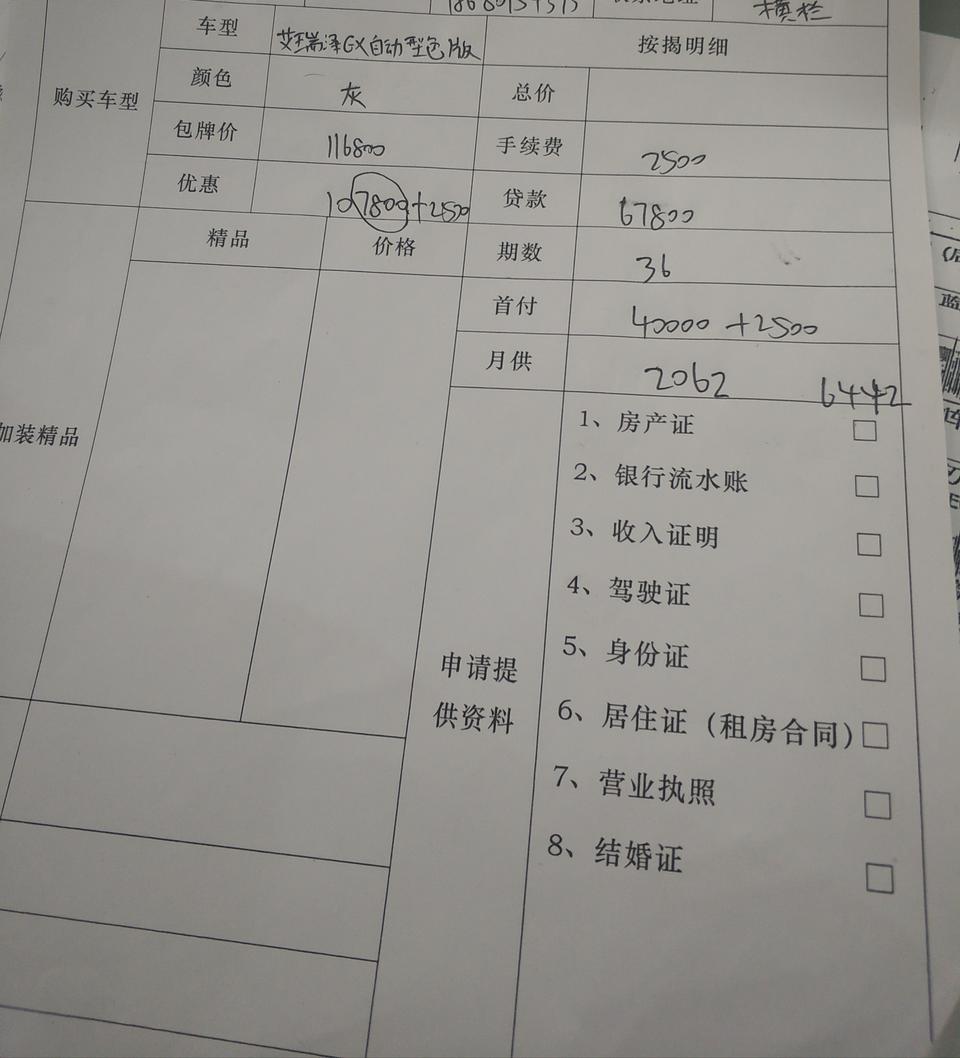 横栏
车型 艾瑞泽GX自动型色版 按揭明细
购买车型
颜色 灰 总价
包牌价 116800 手续费 2500
优惠 107800+2500 贷款 67800
精品 价格 期数 36
首付 40000+2500
月供 2062 6442
加装精品
1、房产证 □
2、银行流水账 □
3、收入证明 □
4、驾驶证 □
5、身份证 □
申请提
供资料
6、居住证（租房合同）□
7、营业执照 □
8、结婚证 □